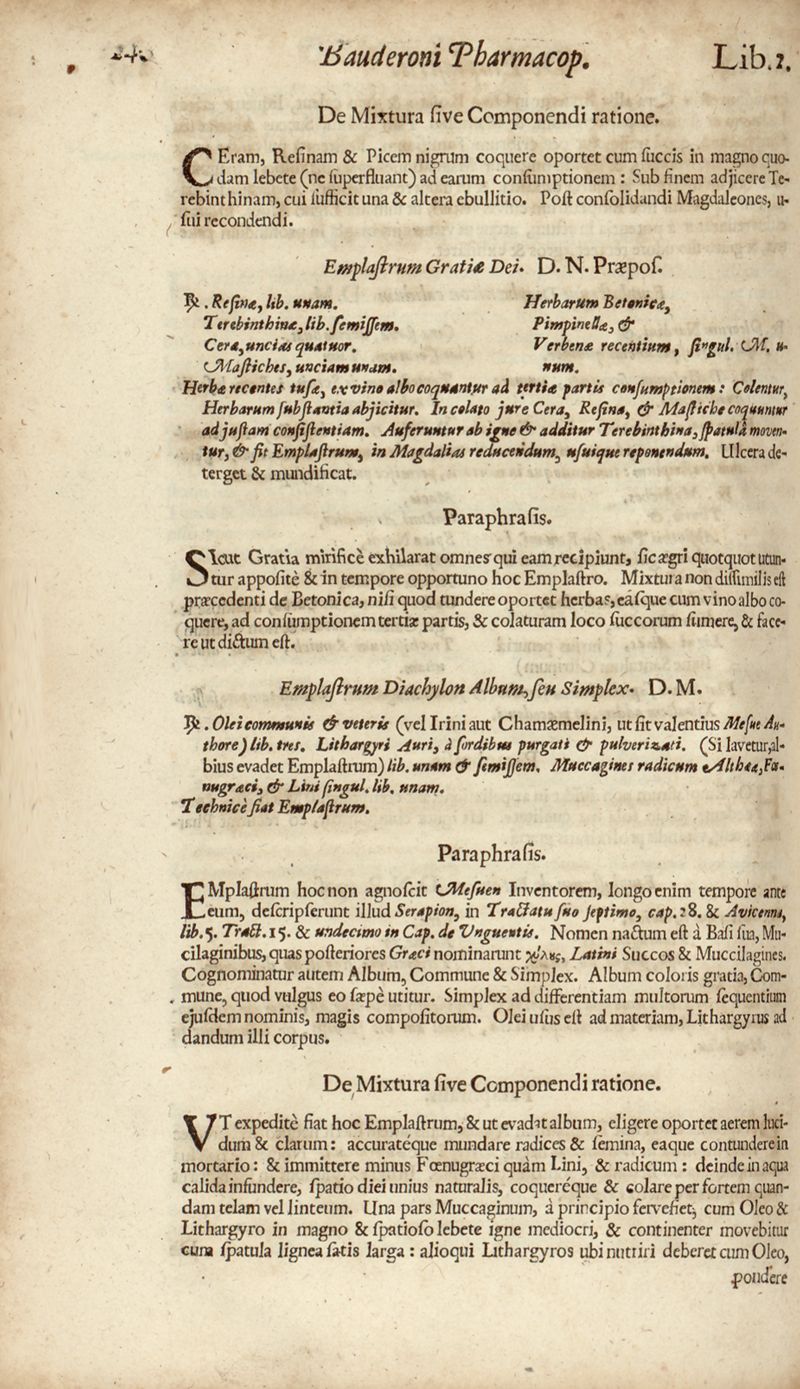 Bauderoni Pharmacop. Lib.2.
De Mixtura ſive Componendi ratione.
CEram, Reſinam & Picem nigrum coquere oportet cum ſuccis in magno quo-
dam lebete (ne ſuperfluant) ad earum conſumptionem : Sub finem adjicere Te-
rebinthinam, cui ſufficit una & altera ebullitio. Poſt conſolidandi Magdaleones, u-
ſui recondendi.
Emplaſtrum Gratiæ Dei. D. N. Præpoſ.
℞. Reſinæ, lib. unam.
Terebinthinæ, lib. ſemiſſem.
Ceræ, uncias quatuor.
Maſtiches, unciam unam.
Herbarum Betonicæ,
Pimpinellæ, &
Verbenæ recentium, ſingul. M. u-
num.
Herbæ recentes tuſæ, ex vino albo coquantur ad tertiæ partis conſumptionem : Colentur,
Herbarum ſubſtantia abjicitur. In colato jure Cera, Reſina, & Maſtiche coquuntur
ad juſtam conſiſtentiam. Auferuntur ab igne & additur Terebinthina, ſpatulâ moven-
tur, & fit Emplaſtrum, in Magdalias reducendum, uſuique reponendum. Ulcera de-
terget & mundificat.
Paraphraſis.
SIcut Gratia mirificè exhilarat omnes qui eam recipiunt, ſic ægri quotquot utun-
tur appoſitè & in tempore opportuno hoc Emplaſtro. Mixtura non diſſimilis eſt
præcedenti de Betonica, niſi quod tundere oportet herbas, eáſque cum vino albo co-
quere, ad conſumptionem tertiæ partis, & colaturam loco ſuccorum ſumere, & face-
re ut dictum eſt.
Emplaſtrum Diachylon Album, ſeu Simplex. D. M.
℞. Olei communis & veteris (vel Irini aut Chamæmelini, ut ſit valentius Meſue Au-
thore) lib. tres. Lithargyri Auri, à ſordibus purgati & pulverizati. (Si lavetur, al-
bius evadet Emplaſtrum) lib. unam & ſemiſſem. Muccagines radicum Altheæ, Fœ-
nugræci, & Lini ſingul. lib. unam.
Technicè fiat Emplaſtrum.
Paraphraſis.
EMplaſtrum hoc non agnoſcit Meſuen Inventorem, longo enim tempore ante
eum, deſcripſerunt illud Serapion, in Tractatu ſuo ſeptimo, cap. 28. & Avicenna,
lib. 5. Tract. 15. & undecimo in Cap. de Unguentis. Nomen nactum eſt à Baſi ſua, Mu-
cilaginibus, quas poſteriores Græci nominarunt χύλους, Latini Succos & Muccilagines.
Cognominatur autem Album, Commune & Simplex. Album coloris gratia, Com-
mune, quod vulgus eo ſæpè utitur. Simplex ad differentiam multorum ſequentium
ejuſdem nominis, magis compoſitorum. Olei uſus eſt ad materiam, Lithargyrus ad
dandum illi corpus.
De Mixtura ſive Componendi ratione.
VT expeditè fiat hoc Emplaſtrum, & ut evadat album, eligere oportet aerem luci-
dum & clarum : accuratéque mundare radices & ſemina, eaque contundere in
mortario : & immittere minus Fœnugræci quàm Lini, & radicum : deinde in aqua
calida infundere, ſpatio diei unius naturalis, coqueréque & colare per fortem quan-
dam telam vel linteum. Una pars Muccaginum, à principio fervefiet, cum Oleo &
Lithargyro in magno & ſpatioſo lebete igne mediocri, & continenter movebitur
cum ſpatula lignea ſatis larga : alioqui Lithargyros ubi nutriri deberet cum Oleo,
pondere